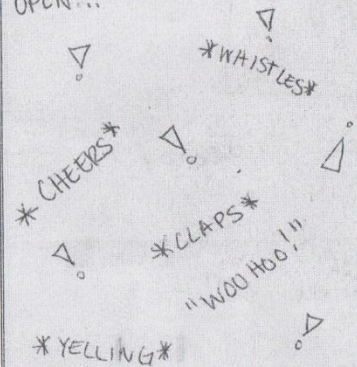 OPEN...
*WHISTLES*
*CHEERS*
*CLAPS*
"WOO HOO!"
*YELLING*